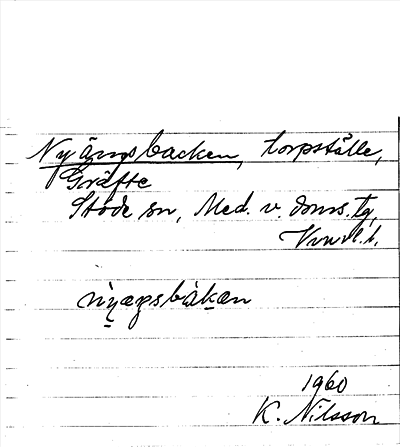 Nyängsbacken, torpställe,
Gräfte
Stöde sn, Med. v. doms. tg,
Vnrl. l.
nỳæŋsbàkan
1960
K. Nilsson